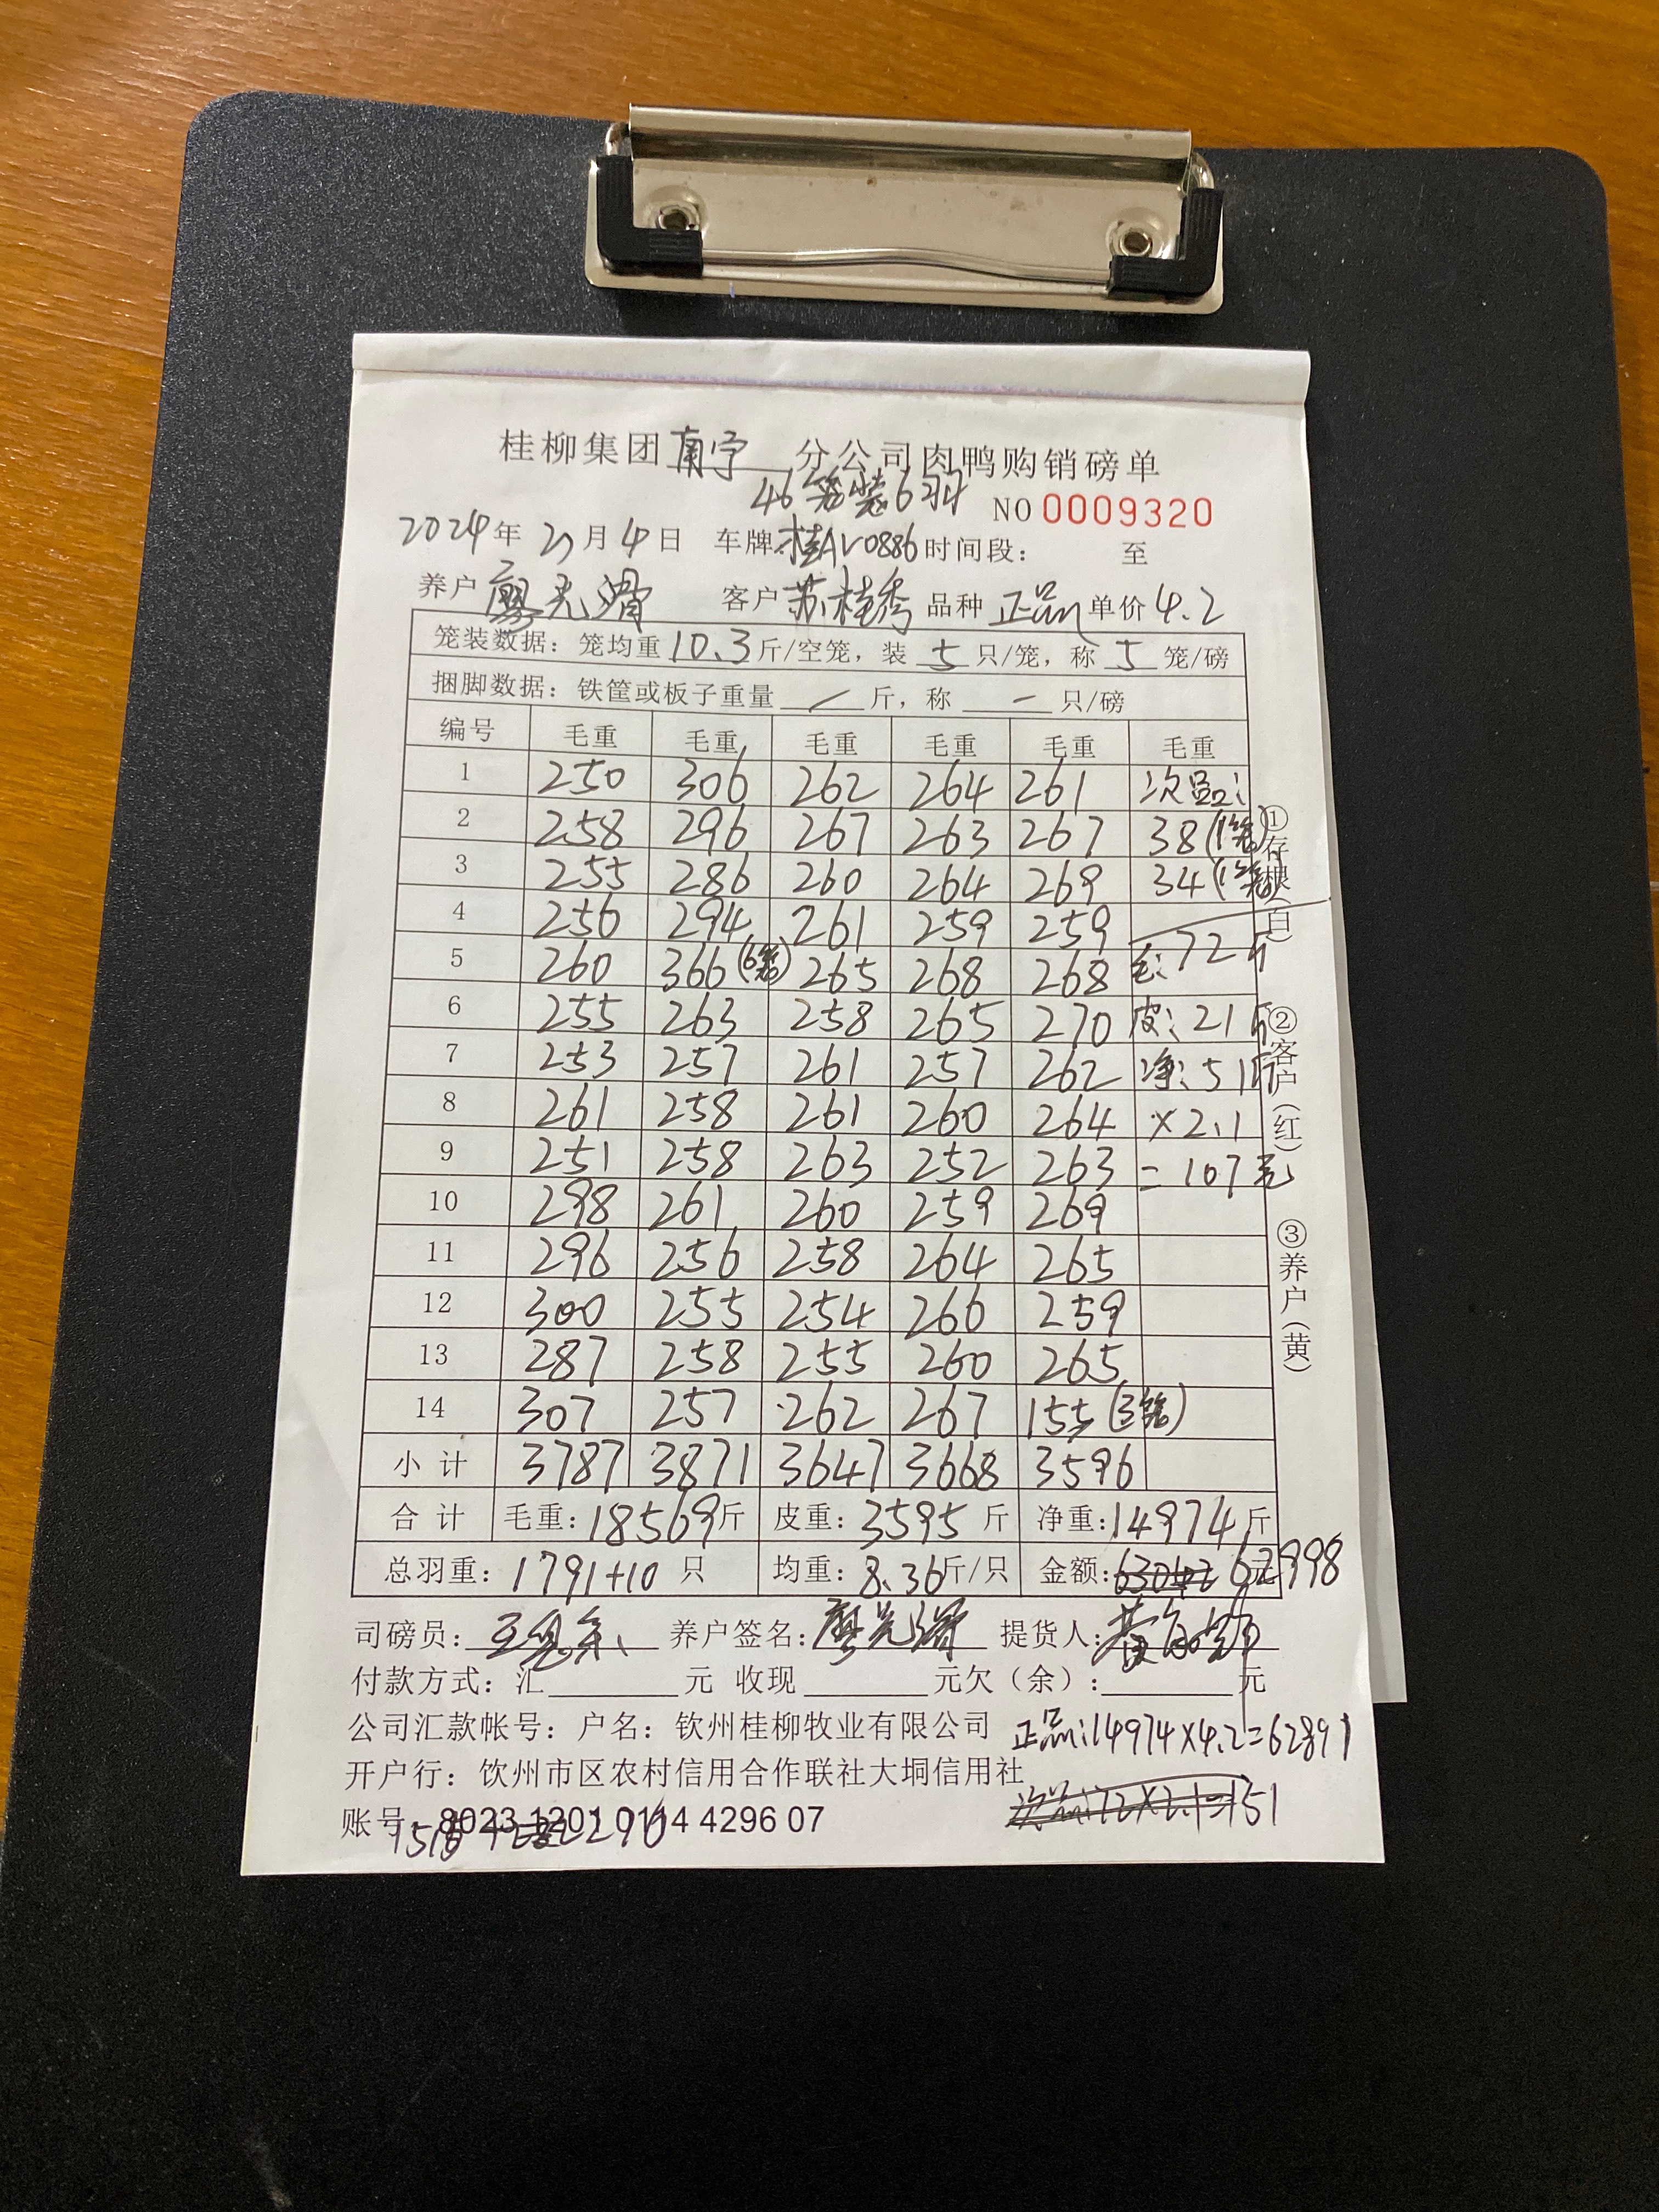 桂柳集团南宁 分公司肉鸭购销磅单
46笼装6羽 NO 0009320
2024年2月4日 车牌:桂AV0886 时间段: 至
养户 廖光 客户 苏桂秀 品种 正品 单价 4.2
笼装数据:笼均重 10.3 斤/空笼,装 5 只/笼,称 5 笼/磅
捆脚数据:铁筐或板子重量 / 斤,称 一 只/磅
编号 毛重 毛重 毛重 毛重 毛重 毛重
1 250 306 262 264 261 次品:
2 258 296 267 263 267 38(1笼)
3 255 286 260 264 269 34(1笼)
4 256 294 261 259 259
5 260 366(6笼) 265 268 268 毛:72斤
6 255 263 258 265 270 皮:21斤
7 253 257 261 257 262 净:51斤
8 261 258 261 260 264 ×2.1
9 251 258 263 252 263 =107元
10 298 261 260 259 269
11 296 256 258 264 265
12 300 255 254 266 259
13 287 258 255 260 265
14 307 257 262 267 155(3笼)
小计 3787 3871 3647 3668 3596
合计 毛重:18569斤 皮重:3595斤 净重:14974斤
总羽重:1791+10 只 均重:8.36斤/只 金额: 62998 元
司磅员: 养户签名:廖光 提货人:黄
付款方式:汇 元 收现 元欠(余): 元
公司汇款帐号:户名:钦州桂柳牧业有限公司 正品:14974×4.2=62891
开户行:钦州市区农村信用合作联社大垌信用社
账号:8023 1201 0114 4296 07 次品:72×2.1=151
①存根(白) ②客户(红) ③养户(黄)